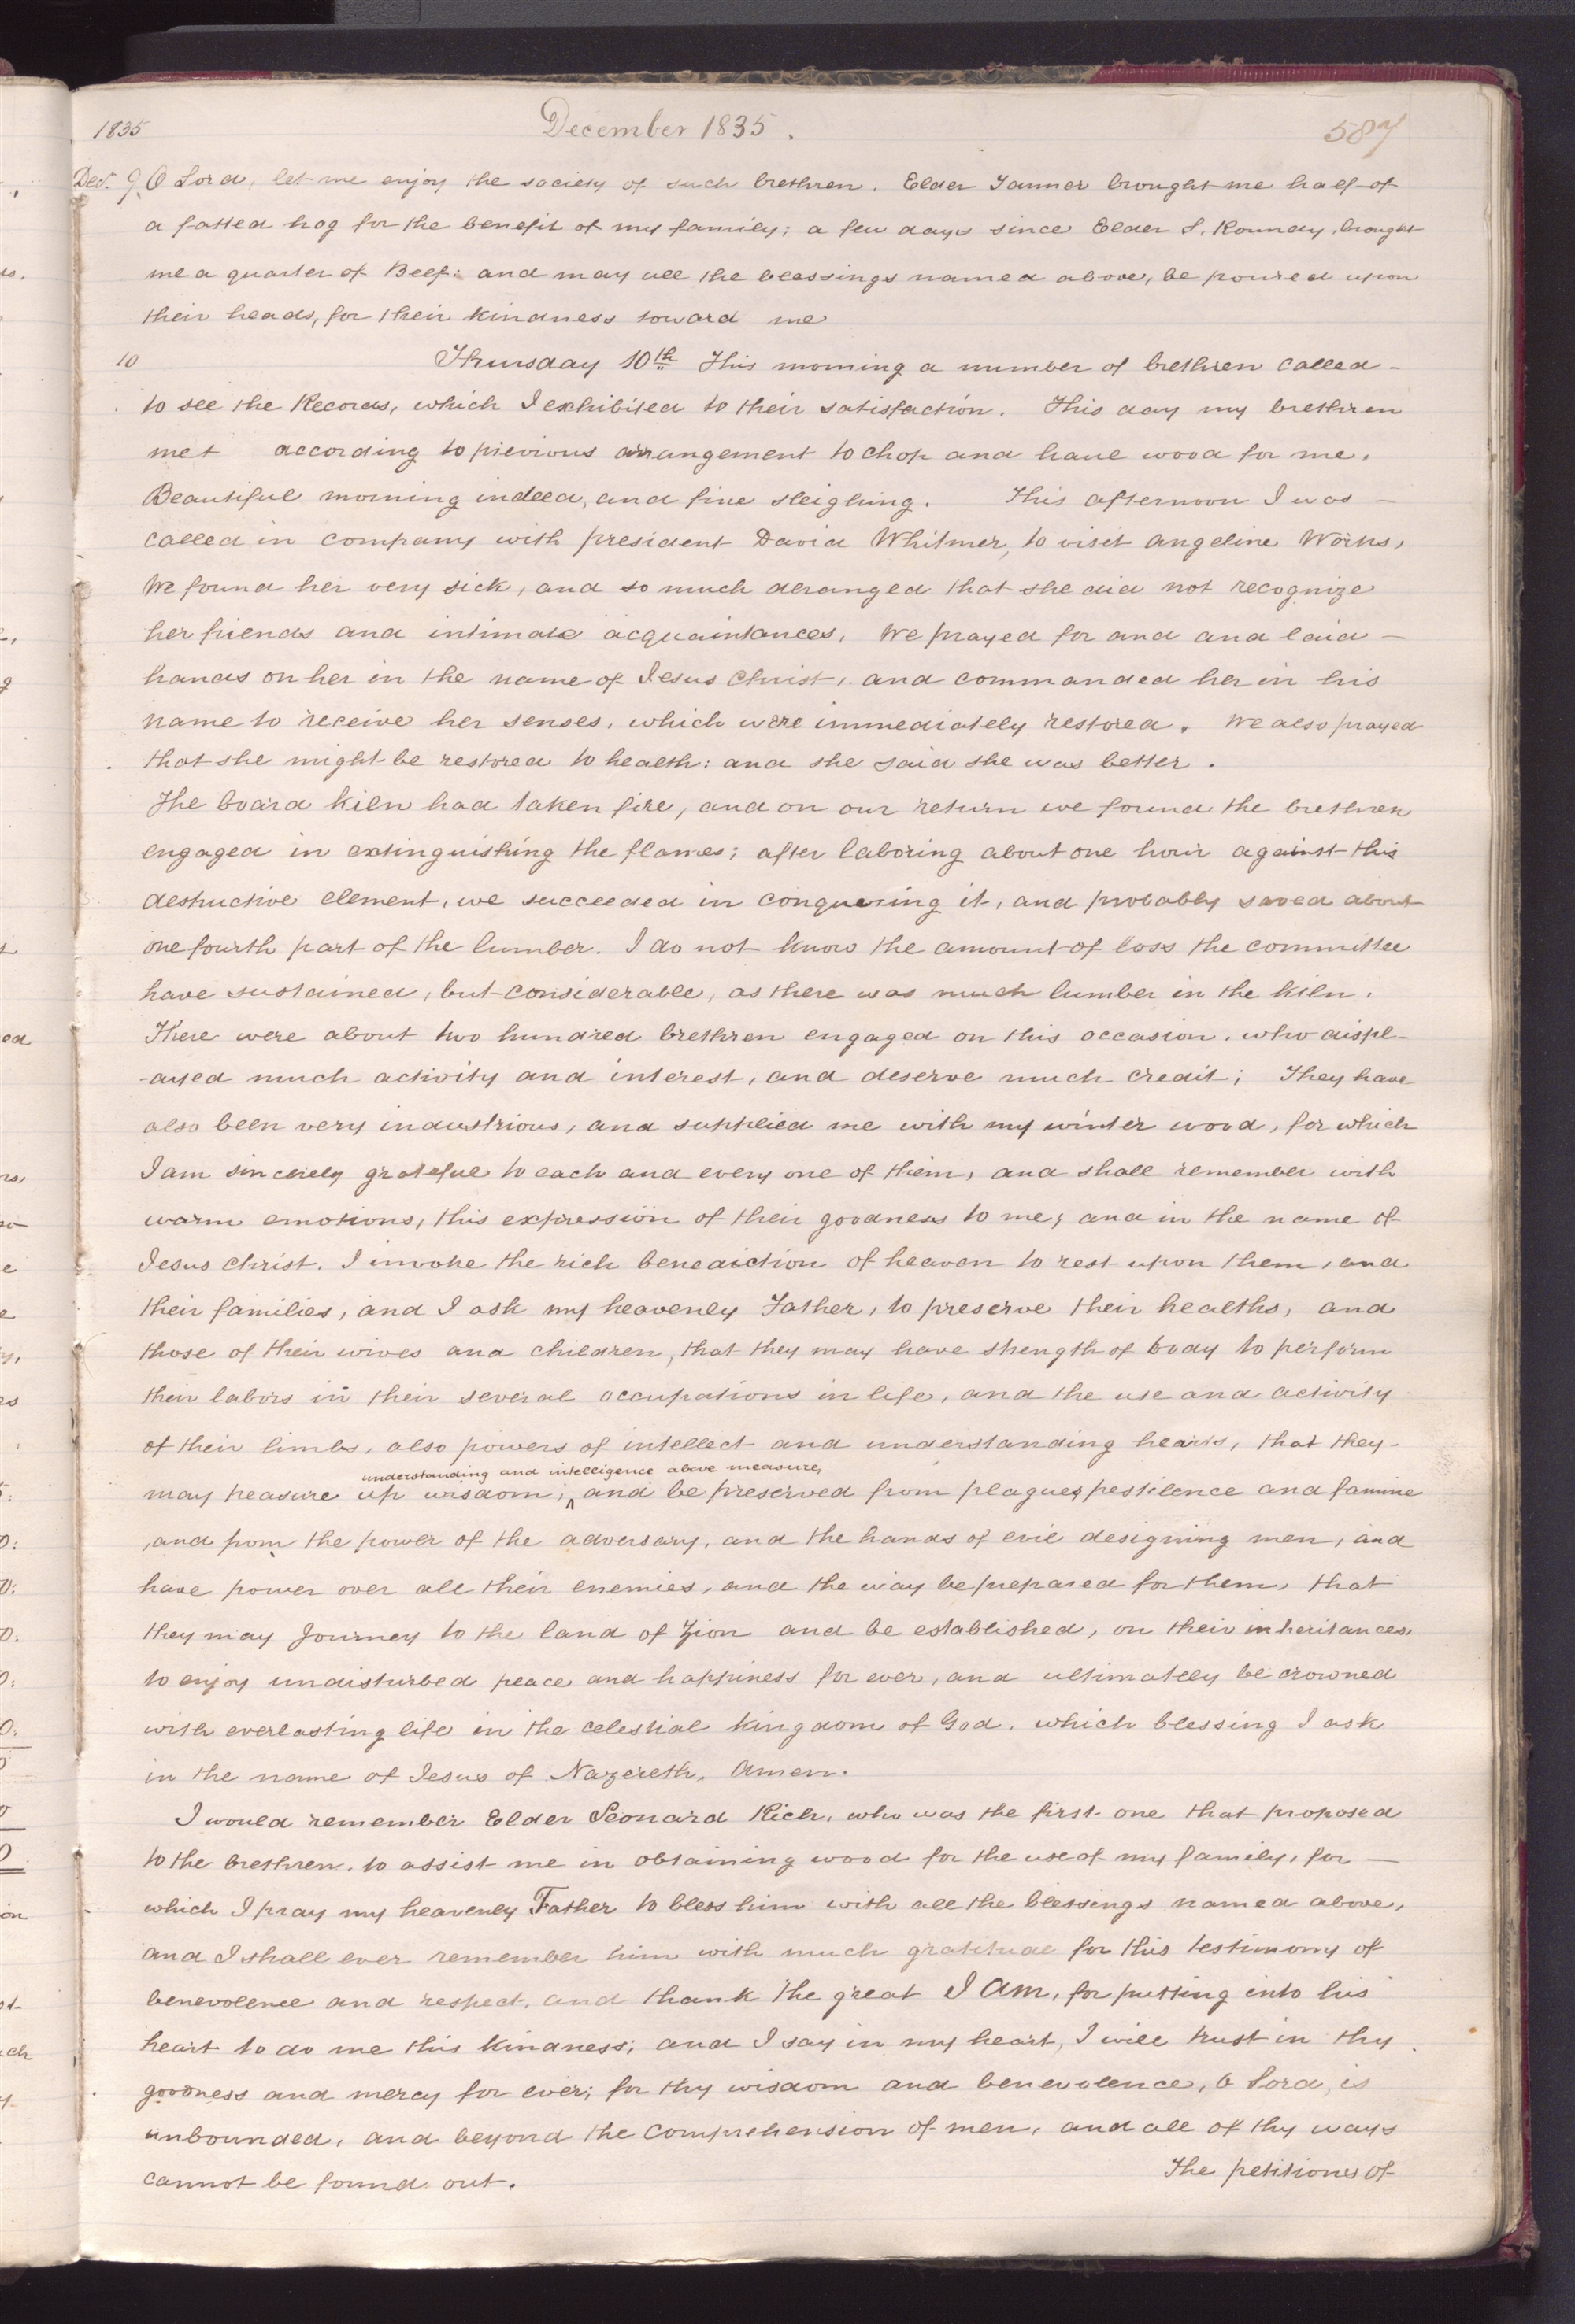 1835 December 1835. 587
Dec. 9. O Lord, let me enjoy the society of such brethren. Elder Tanner brought me half of
a fatted hog for the benefit of my family; a few days since Elder S. Roundy, brought
me a quarter of Beef: and may all the blessings named above, be poured upon
their heads, for their kindness toward me
10 Thursday 10th This morning a number of brethren called-
to see the Records, which I exhibited to their satisfaction. This day my brethren
met according to previous arrangement to chop and haul wood for me.
Beautiful morning indeed, and fine sleighing. This afternoon I was —
called in company with president David Whitmer, to visit Angeline Works,
We found her very sick, and so much deranged that she did not recognize
her friends and intimate acquaintances, We prayed for and and laid —
hands on her in the name of Jesus Christ, and commanded her in his
name to receive her senses, which were immediately restored. We also prayed
that she might be restored to health: and she said she was better.
The board kiln had taken fire, and on our return we found the brethren
engaged in extinguishing the flames; after laboring about one hour against this
destructive element, we succeeded in conquering it, and probably saved about
one fourth part of the lumber. I do not know the amount of loss the committee
have sustained, but considerable, as there was much lumber in the kiln.
There were about two hundred brethren engaged on this occasion, who displ-
-ayed much activity and interest, and deserve much credit; They have
also been very industrious, and supplied me with my winter wood, for which
I am sincerely grateful to each and every one of them, and shall remember with
warm emotions, this expression of their goodness to me; and in the name of
Jesus Christ. I invoke the rich benediction of heaven to rest upon them, and
their families, and I ask my heavenly Father, to preserve their healths, and
those of their wives and children, that they may have strength of body to perform
their labors in their several occupations in life, and the use and activity
of their limbs, also powers of intellect and understanding hearts, that they-
understanding and intelligence above measure,
may treasure up wisdom; ^ and be preserved from plagues, pestilence and famine
, and from the power of the adversary, and the hands of evil designing men, and
have power over all their enemies, and the way be prepared for them, that
they may Journey to the land of Zion and be established, on their inheritances,
to enjoy undisturbed peace and happiness for ever, and ultimately be crowned
with everlasting life in the celestial kingdom of God, which blessing I ask
in the name of Jesus of Nazereth, Amen.
I would remember Elder Leonard Rich, who was the first one that proposed
to the brethren, to assist me in obtaining wood for the use of my family, for —
which I pray my heavenly Father to bless him with all the blessings named above,
and I shall ever remember him with much gratitude for this testimony of
benevolence and respect, and thank the great I Am, for putting into his
heart to do me this kindness; and I say in my heart, I will trust in thy
goodness and mercy for ever; for thy wisdom and benevolence, O Lord, is
unbounded, and beyond the comprehension of men, and all of thy ways
cannot be found out. The petitions of